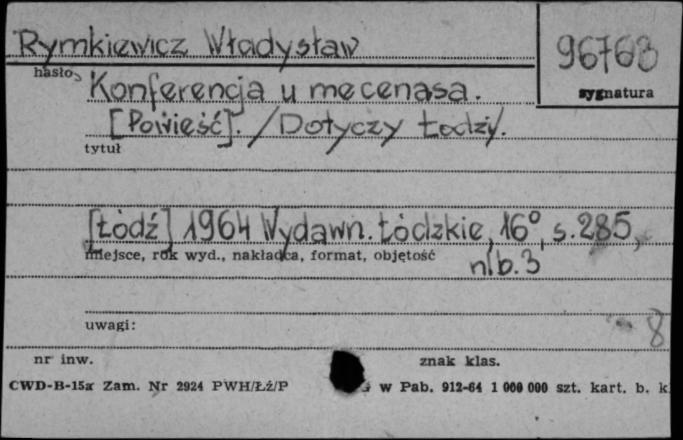 Rymkiewicz Władysław
96768
hasło
sygnatura
Konferencja u mecenasa.
[Powieść]. /Dotyczy Łodzi/.
tytuł
[Łódź] 1964 Wydawn. Łódzkie, 16°, s. 285,
miejsce, rok wyd., nakładca, format, objętość
nlb. 3
uwagi:
8
nr inw.
znak klas.
CWD-B-15a Zam. Nr 2924 PWH/Łź/P
w Pab. 912-64 1 000 000 szt. kart. b. k